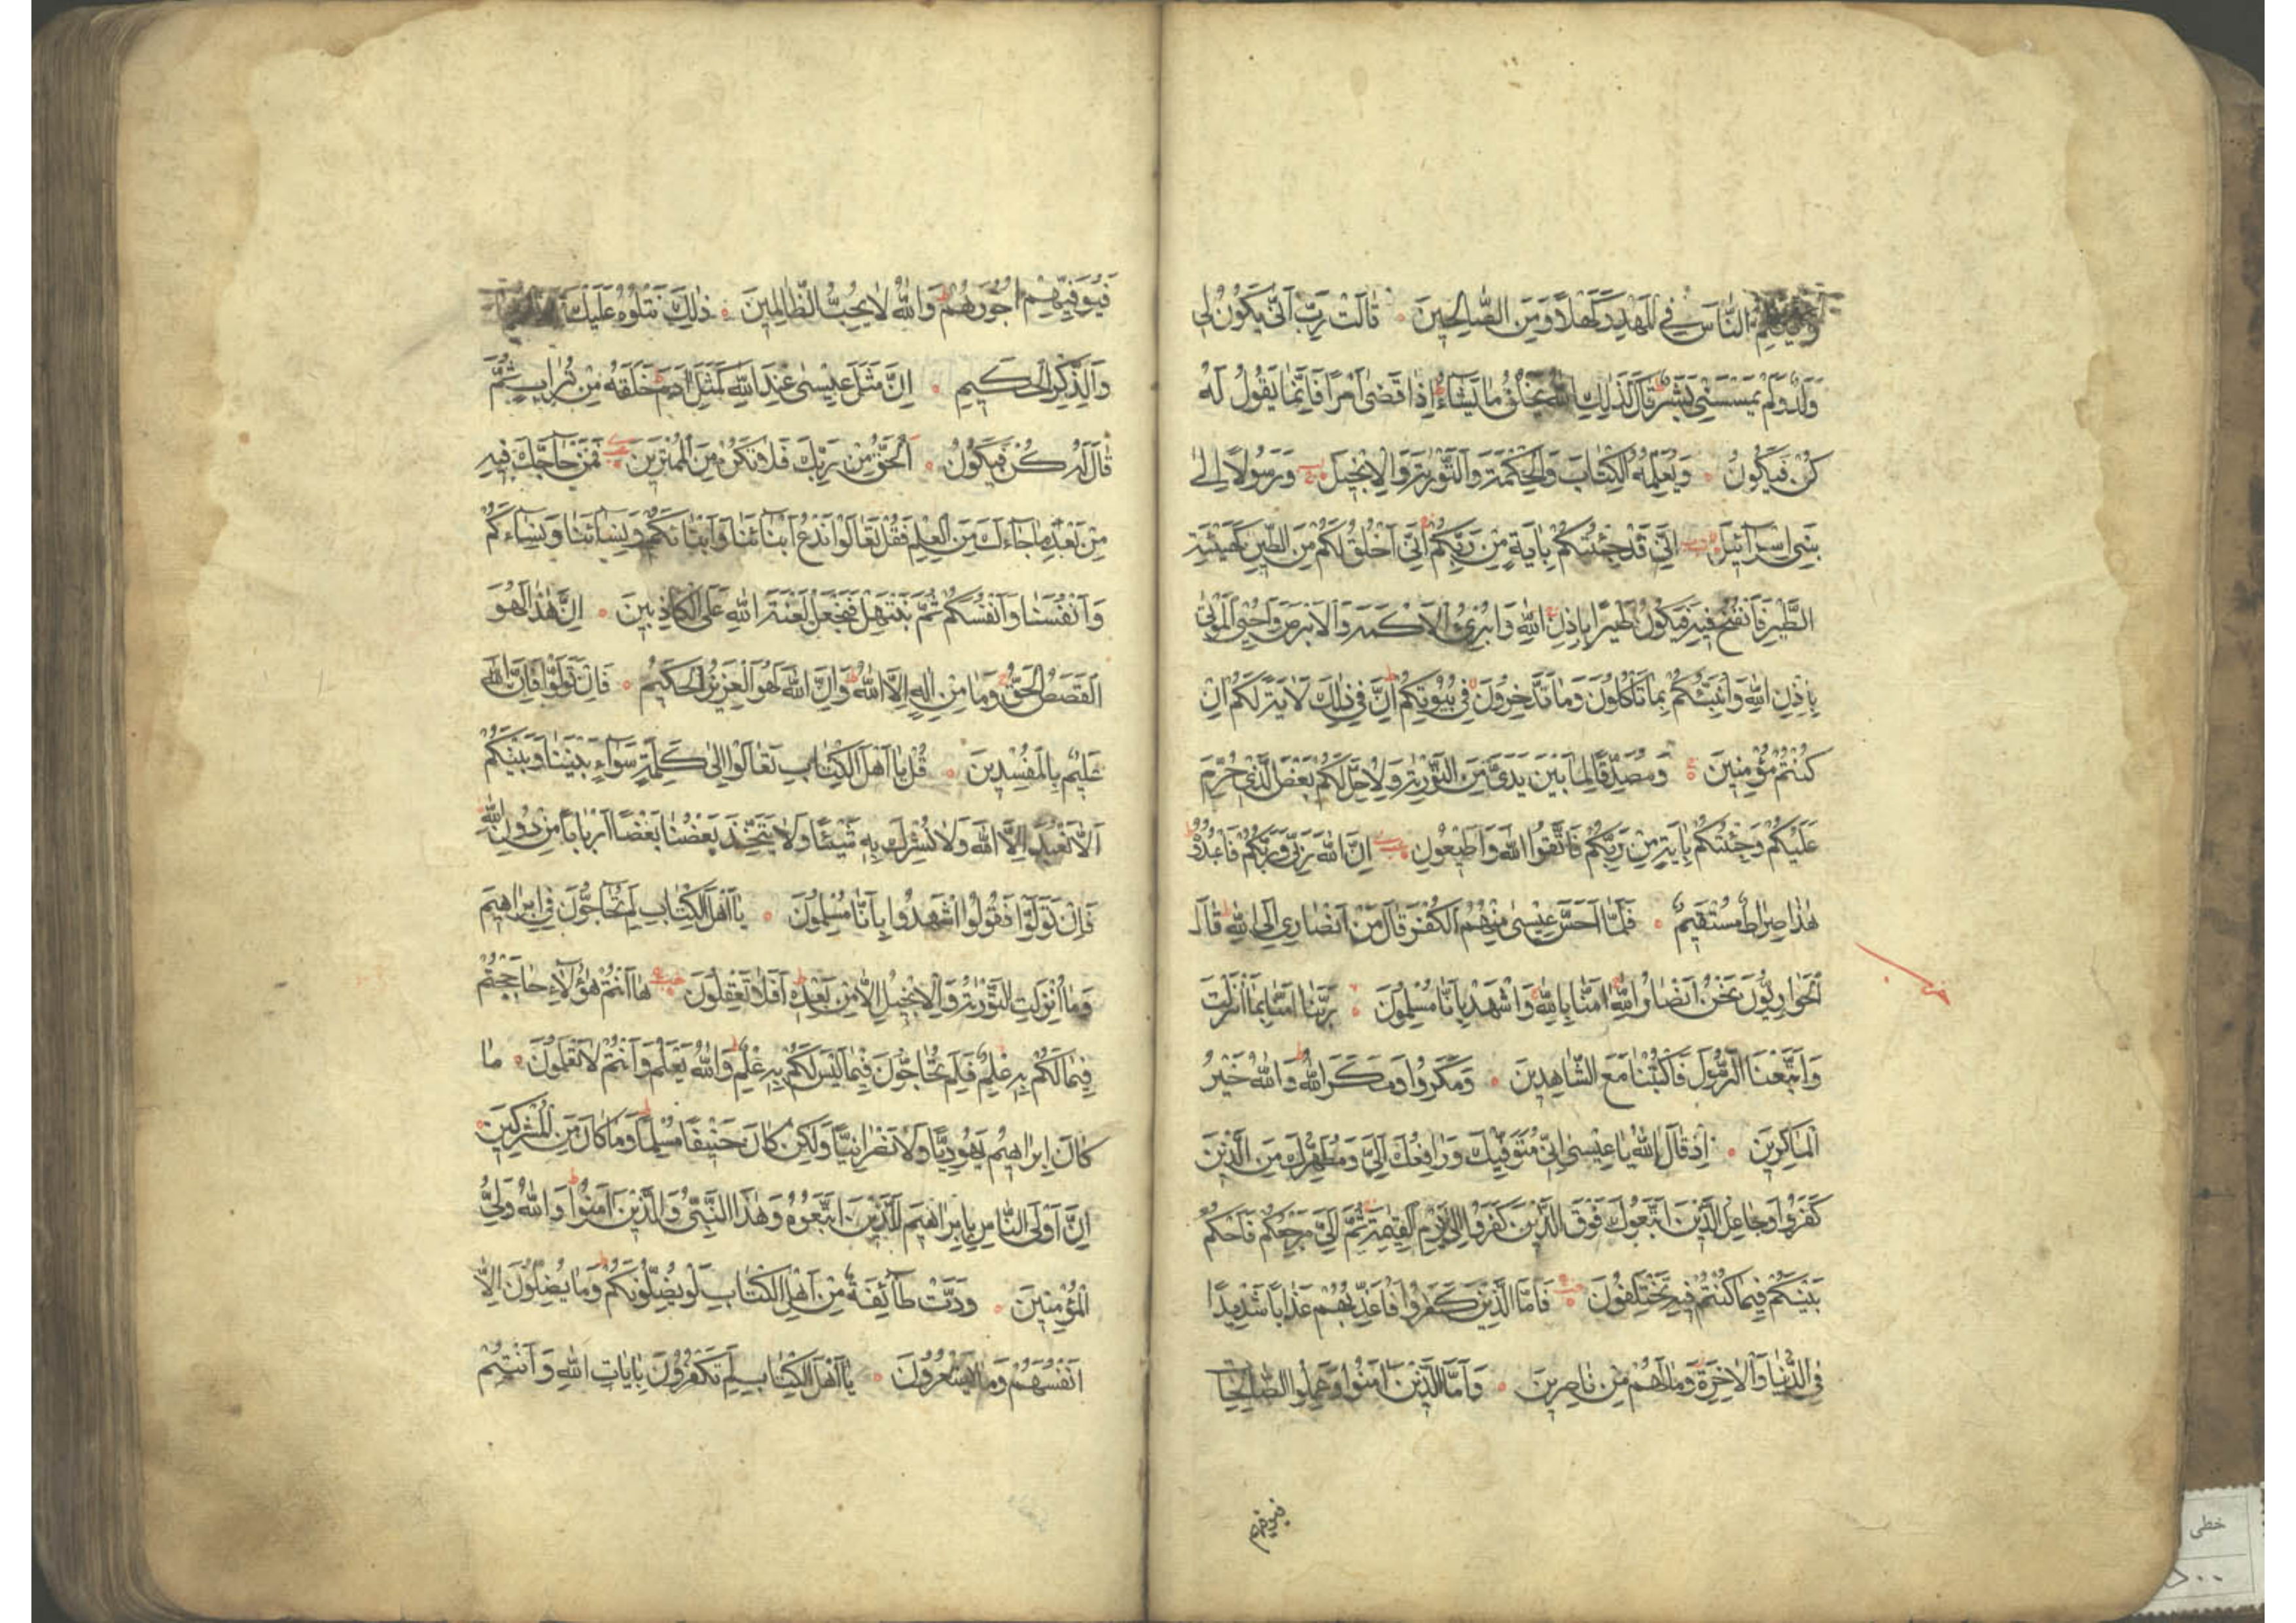 وَيُكَلِّمُ النَّاسَ فِي الْمَهْدِ وَكَهْلًا وَمِنَ الصَّالِحِينَ قَالَتْ رَبِّ أَنَّى يَكُونُ لِي
وَلَدٌ وَلَمْ يَمْسَسْنِي بَشَرٌ قَالَ كَذَلِكِ اللهُ يَخْلُقُ مَا يَشَاءُ إِذَا قَضَى أَمْرًا فَإِنَّمَا يَقُولُ لَهُ
كُنْ فَيَكُونُ وَيُعَلِّمُهُ الْكِتَابَ وَالْحِكْمَةَ وَالتَّوْرٰيةَ وَالْإِنْجِيلَ وَرَسُولًا إِلَى
بَنِي إِسْرَائِيلَ أَنِّي قَدْ جِئْتُكُمْ بِآيَةٍ مِنْ رَبِّكُمْ أَنِّي أَخْلُقُ لَكُمْ مِنَ الطِّينِ كَهَيْئَةِ
الطَّيْرِ فَأَنْفُخُ فِيهِ فَيَكُونُ طَيْرًا بِإِذْنِ اللهِ وَأُبْرِئُ الْأَكْمَهَ وَالْأَبْرَصَ وَأُحْيِي الْمَوْتَى
بِإِذْنِ اللهِ وَأُنَبِّئُكُمْ بِمَا تَأْكُلُونَ وَمَا تَدَّخِرُونَ فِي بُيُوتِكُمْ إِنَّ فِي ذَلِكَ لَآيَةً لَكُمْ إِنْ
كُنْتُمْ مُؤْمِنِينَ وَمُصَدِّقًا لِمَا بَيْنَ يَدَيَّ مِنَ التَّوْرٰيةِ وَلِأُحِلَّ لَكُمْ بَعْضَ الَّذِي حُرِّمَ
عَلَيْكُمْ وَجِئْتُكُمْ بِآيَةٍ مِنْ رَبِّكُمْ فَاتَّقُوا اللهَ وَأَطِيعُونِ إِنَّ اللهَ رَبِّي وَرَبُّكُمْ فَاعْبُدُوهُ
هٰذَا صِرَاطٌ مُسْتَقِيمٌ فَلَمَّا أَحَسَّ عِيسَى مِنْهُمُ الْكُفْرَ قَالَ مَنْ أَنْصَارِي إِلَى اللهِ قَالَ
الْحَوَارِيُّونَ نَحْنُ أَنْصَارُ اللهِ آمَنَّا بِاللهِ وَاشْهَدْ بِأَنَّا مُسْلِمُونَ رَبَّنَا آمَنَّا بِمَا أَنْزَلْتَ
وَاتَّبَعْنَا الرَّسُولَ فَاكْتُبْنَا مَعَ الشَّاهِدِينَ وَمَكَرُوا وَمَكَرَ اللهُ وَاللهُ خَيْرُ
الْمَاكِرِينَ إِذْ قَالَ اللهُ يَا عِيسَى إِنِّي مُتَوَفِّيكَ وَرَافِعُكَ إِلَيَّ وَمُطَهِّرُكَ مِنَ الَّذِينَ
كَفَرُوا وَجَاعِلُ الَّذِينَ اتَّبَعُوكَ فَوْقَ الَّذِينَ كَفَرُوا إِلَى يَوْمِ الْقِيٰمَةِ ثُمَّ إِلَيَّ مَرْجِعُكُمْ فَأَحْكُمُ
بَيْنَكُمْ فِيمَا كُنْتُمْ فِيهِ تَخْتَلِفُونَ فَأَمَّا الَّذِينَ كَفَرُوا فَأُعَذِّبُهُمْ عَذَابًا شَدِيدًا
فِي الدُّنْيَا وَالْآخِرَةِ وَمَا لَهُمْ مِنْ نَاصِرِينَ وَأَمَّا الَّذِينَ آمَنُوا وَعَمِلُوا الصَّالِحَاتِ
فيوفيهم
فَيُوَفِّيهِمْ أُجُورَهُمْ وَاللهُ لَا يُحِبُّ الظَّالِمِينَ ذٰلِكَ نَتْلُوهُ عَلَيْكَ
وَالذِّكْرِ الْحَكِيمِ إِنَّ مَثَلَ عِيسَى عِنْدَ اللهِ كَمَثَلِ آدَمَ خَلَقَهُ مِنْ تُرَابٍ ثُمَّ
قَالَ لَهُ كُنْ فَيَكُونُ الْحَقُّ مِنْ رَبِّكَ فَلَا تَكُنْ مِنَ الْمُمْتَرِينَ فَمَنْ حَاجَّكَ فِيهِ
مِنْ بَعْدِ مَا جَاءَكَ مِنَ الْعِلْمِ فَقُلْ تَعَالَوْا نَدْعُ أَبْنَاءَنَا وَأَبْنَاءَكُمْ وَنِسَاءَنَا وَنِسَاءَكُمْ
وَأَنْفُسَنَا وَأَنْفُسَكُمْ ثُمَّ نَبْتَهِلْ فَنَجْعَلْ لَعْنَةَ اللهِ عَلَى الْكَاذِبِينَ إِنَّ هٰذَا لَهُوَ
الْقَصَصُ الْحَقُّ وَمَا مِنْ إِلٰهٍ إِلَّا اللهُ وَإِنَّ اللهَ لَهُوَ الْعَزِيزُ الْحَكِيمُ فَإِنْ تَوَلَّوْا فَإِنَّ اللهَ
عَلِيمٌ بِالْمُفْسِدِينَ قُلْ يَا أَهْلَ الْكِتَابِ تَعَالَوْا إِلَى كَلِمَةٍ سَوَاءٍ بَيْنَنَا وَبَيْنَكُمْ
أَلَّا نَعْبُدَ إِلَّا اللهَ وَلَا نُشْرِكَ بِهِ شَيْئًا وَلَا يَتَّخِذَ بَعْضُنَا بَعْضًا أَرْبَابًا مِنْ دُونِ اللهِ
فَإِنْ تَوَلَّوْا فَقُولُوا اشْهَدُوا بِأَنَّا مُسْلِمُونَ يَا أَهْلَ الْكِتَابِ لِمَ تُحَاجُّونَ فِي إِبْرَاهِيمَ
وَمَا أُنْزِلَتِ التَّوْرٰيةُ وَالْإِنْجِيلُ إِلَّا مِنْ بَعْدِهِ أَفَلَا تَعْقِلُونَ هَا أَنْتُمْ هٰؤُلَاءِ حَاجَجْتُمْ
فِيمَا لَكُمْ بِهِ عِلْمٌ فَلِمَ تُحَاجُّونَ فِيمَا لَيْسَ لَكُمْ بِهِ عِلْمٌ وَاللهُ يَعْلَمُ وَأَنْتُمْ لَا تَعْلَمُونَ مَا
كَانَ إِبْرَاهِيمُ يَهُودِيًّا وَلَا نَصْرَانِيًّا وَلَكِنْ كَانَ حَنِيفًا مُسْلِمًا وَمَا كَانَ مِنَ الْمُشْرِكِينَ
إِنَّ أَوْلَى النَّاسِ بِإِبْرَاهِيمَ لَلَّذِينَ اتَّبَعُوهُ وَهٰذَا النَّبِيُّ وَالَّذِينَ آمَنُوا وَاللهُ وَلِيُّ
الْمُؤْمِنِينَ وَدَّتْ طَائِفَةٌ مِنْ أَهْلِ الْكِتَابِ لَوْ يُضِلُّونَكُمْ وَمَا يُضِلُّونَ إِلَّا
أَنْفُسَهُمْ وَمَا يَشْعُرُونَ يَا أَهْلَ الْكِتَابِ لِمَ تَكْفُرُونَ بِآيَاتِ اللهِ وَأَنْتُمْ
خطی